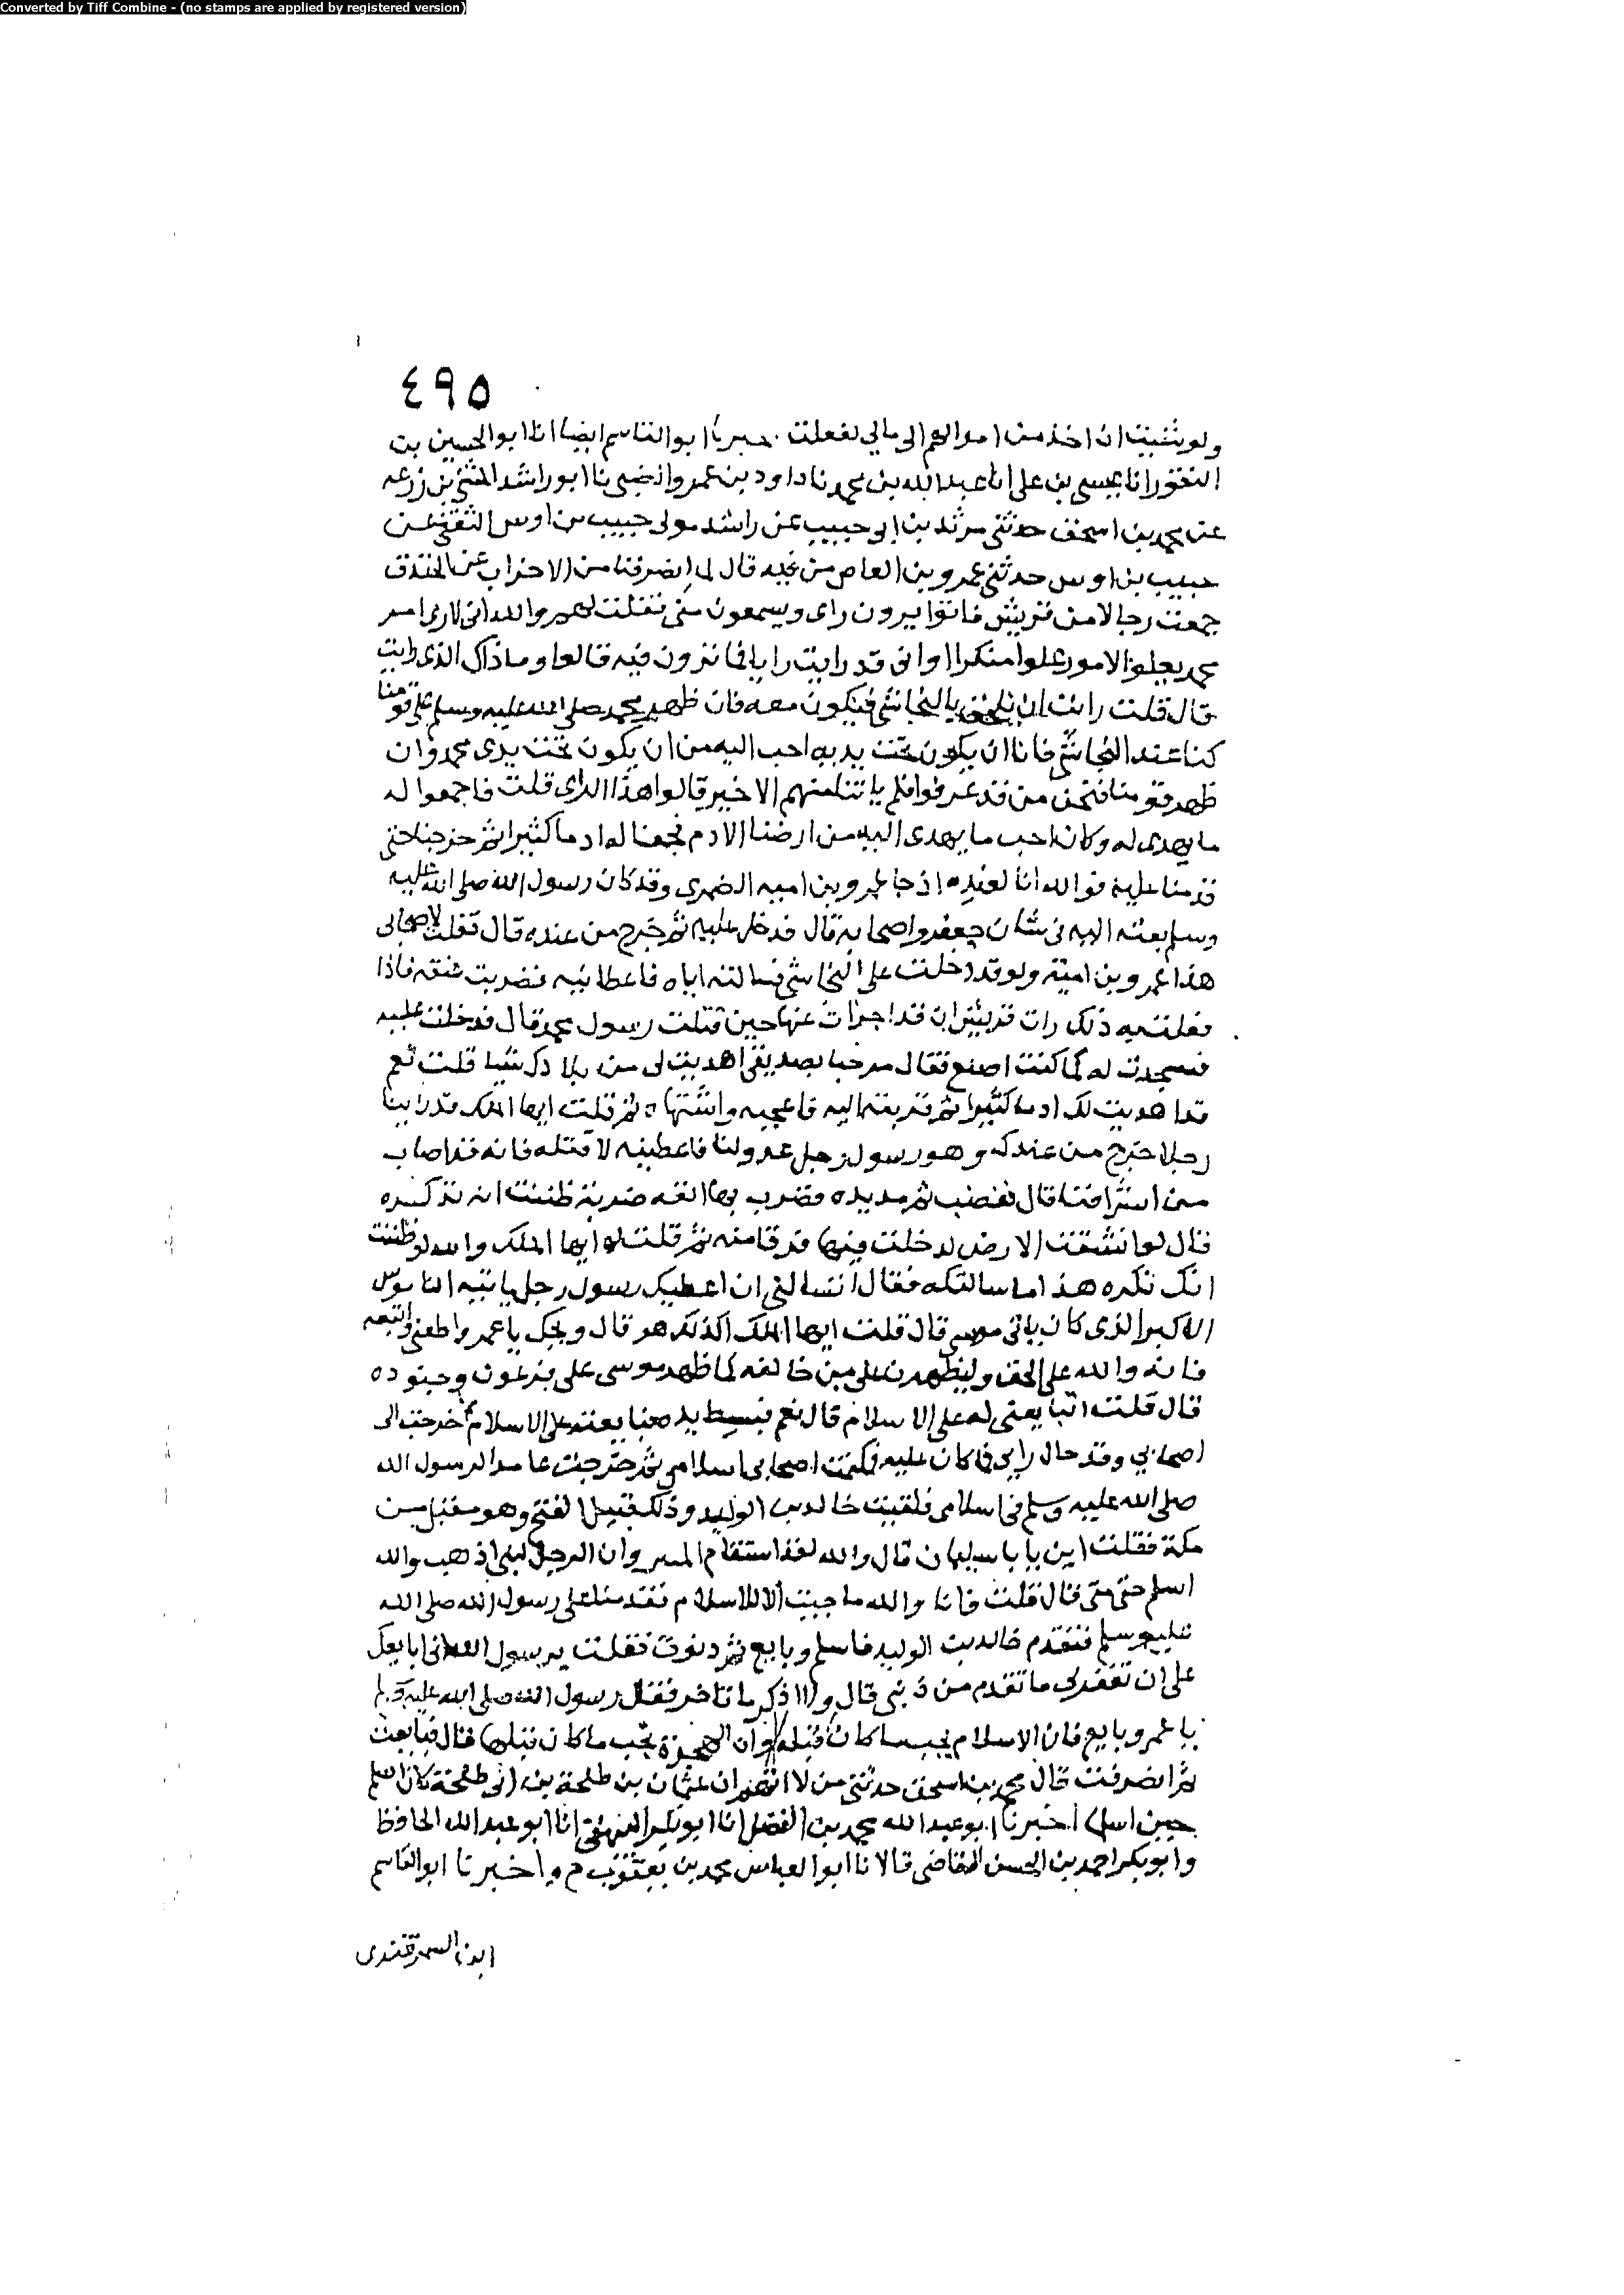 Converted by Tiff Combine - (no stamps are applied by registered version)
٤٩٥
ولو شئت ان اخذ من اموالهم الى مالي لفعلت اخبرنا ابو القاسم ايضا انا ابو الحسين بن
النقور انا عيسى بن علي انا عبد الله بن محمد نا داود بن عمرو الضبي نا ابو راشد المثنى بن زرعه
عن محمد بن اسحق حدثني مرثد بن ابي حبيب عن راشد مولى حبيب بن اوس الثقفي عن
حبيب بن اوس حدثني عمرو بن العاص من فيه قال لما انصرفنا من الاحزاب عن الخندق
جمعت رجالا من قريش كانوا يرون راى ويسمعون منى فقلت لهم والله انى لارى امر
محمد يعلوا الامور علوا منكرا وانى قد رايت رايا فما ترون فيه قالوا وما ذاك الذى رايت
قال قلت رايت ان نلحق بالنجاشي فنكون معه فان ظهر محمد صلى الله عليه وسلم على قومنا
كنا عند النجاشي فانا ان نكون تحت يديه احب اليه من ان نكون تحت يدى محمد وان
ظهر قومنا فنحن من قد عرفوا فلم ياتنا منهم الا خير قالوا هذا الراى قلت فاجمعوا له
ما يهدى له وكان احب ما يهدى اليه من ارضنا الادم فجمعنا له ادما كثيرا ثم خرجنا حتى
قدمنا عليه فوالله انا لعنده اذ جا عمرو بن اميه الضمرى وقد كان رسول الله صلى الله عليه
وسلم بعثه اليه في شان جعفر واصحابه قال فدخل عليه ثم خرج من عنده قال فقلت لاصحابى
هذا عمرو بن امية ولو قد دخلت على النجاشي فسالته اياه فاعطانيه فضربت عنقه فاذا
فعلت به ذلك رات قريش ان قد اجزات عنها حين قتلت رسول محمد قال فدخلت عليه
فسجدت له كما كنت اصنع فقال مرحبا بصديقى اهديت لى من بلادك شيا قلت نعم
قد اهديت لك ادما كثيرا ثم قربته اليه فاعجبه واشتهاه ثم قلت ايها الملك قد راينا
رجلا خرج من عندك وهو رسول رجل عدو لنا فاعطنيه لاقتله فانه قد اصاب
من اشرافنا قال فغضب ثم مد يده فضرب بها انفه ضربة ظننت انه قد كسره
قال لو انشقت الارض لدخلت فيها فرقا منه ثم قلت له ايها الملك والله لو ظننت
انك تكره هذا ما سالتكه فقال اتسالنى ان اعطيك رسول رجل ياتيه الناموس
الاكبر الذى كان ياتى موسى قال قلت ايها الملك اكذلك هو قال ويحك يا عمرو اطعنى واتبعه
فانه والله على الحق وليظهرن على من خالفه كما ظهر موسى على فرعون وجنوده
قال قلت اتبايعنى له على الاسلام قال نعم فبسط يده فبايعته على الاسلام ثم خرجت الى
اصحابي وقد حال رايى عما كان عليه فكتمت اصحابى اسلامى ثم خرجت عامدا لرسول الله
صلى الله عليه وسلم اسلامى فلقيت خالد بن الوليد وذلك قبيل الفتح وهو مقبل من
مكة فقلت اين يا با سليمان قال والله لقد استقام وان الرجل لنبى اذهب والله
اسلم حتى متى قال قلت فانا والله ما جيت الا للاسلام فقدمنا على رسول الله صلى الله
عليه وسلم فتقدم خالد بن الوليد فاسلم وبايع ثم دنوت فقلت يرسول الله انى ابايعك
على ان تغفر لى ما تقدم من ذنبى قال ولا اذكر ما تاخر فقال رسول الله صلى الله عليه وسلم
يا عمرو بايع فان الاسلام يجب ما كان قبله وان الهجرة تجب ما كان قبلها قال فبايعت
ثم انصرفت قال محمد بن اسحق حدثنى من لا اتهم ان عثمان بن طلحة بن ابى طلحة كان اسلم
حين اسلما اخبرنا ابو عبد الله محمد بن الفضل انا ابو بكر البيهقى انا ابو عبد الله الحافظ
وابو بكر احمد بن الحسن القاضى قالا نا ابو العباس محمد بن يعقوب م واخبرنا ابو القاسم
ابن السمرقندى